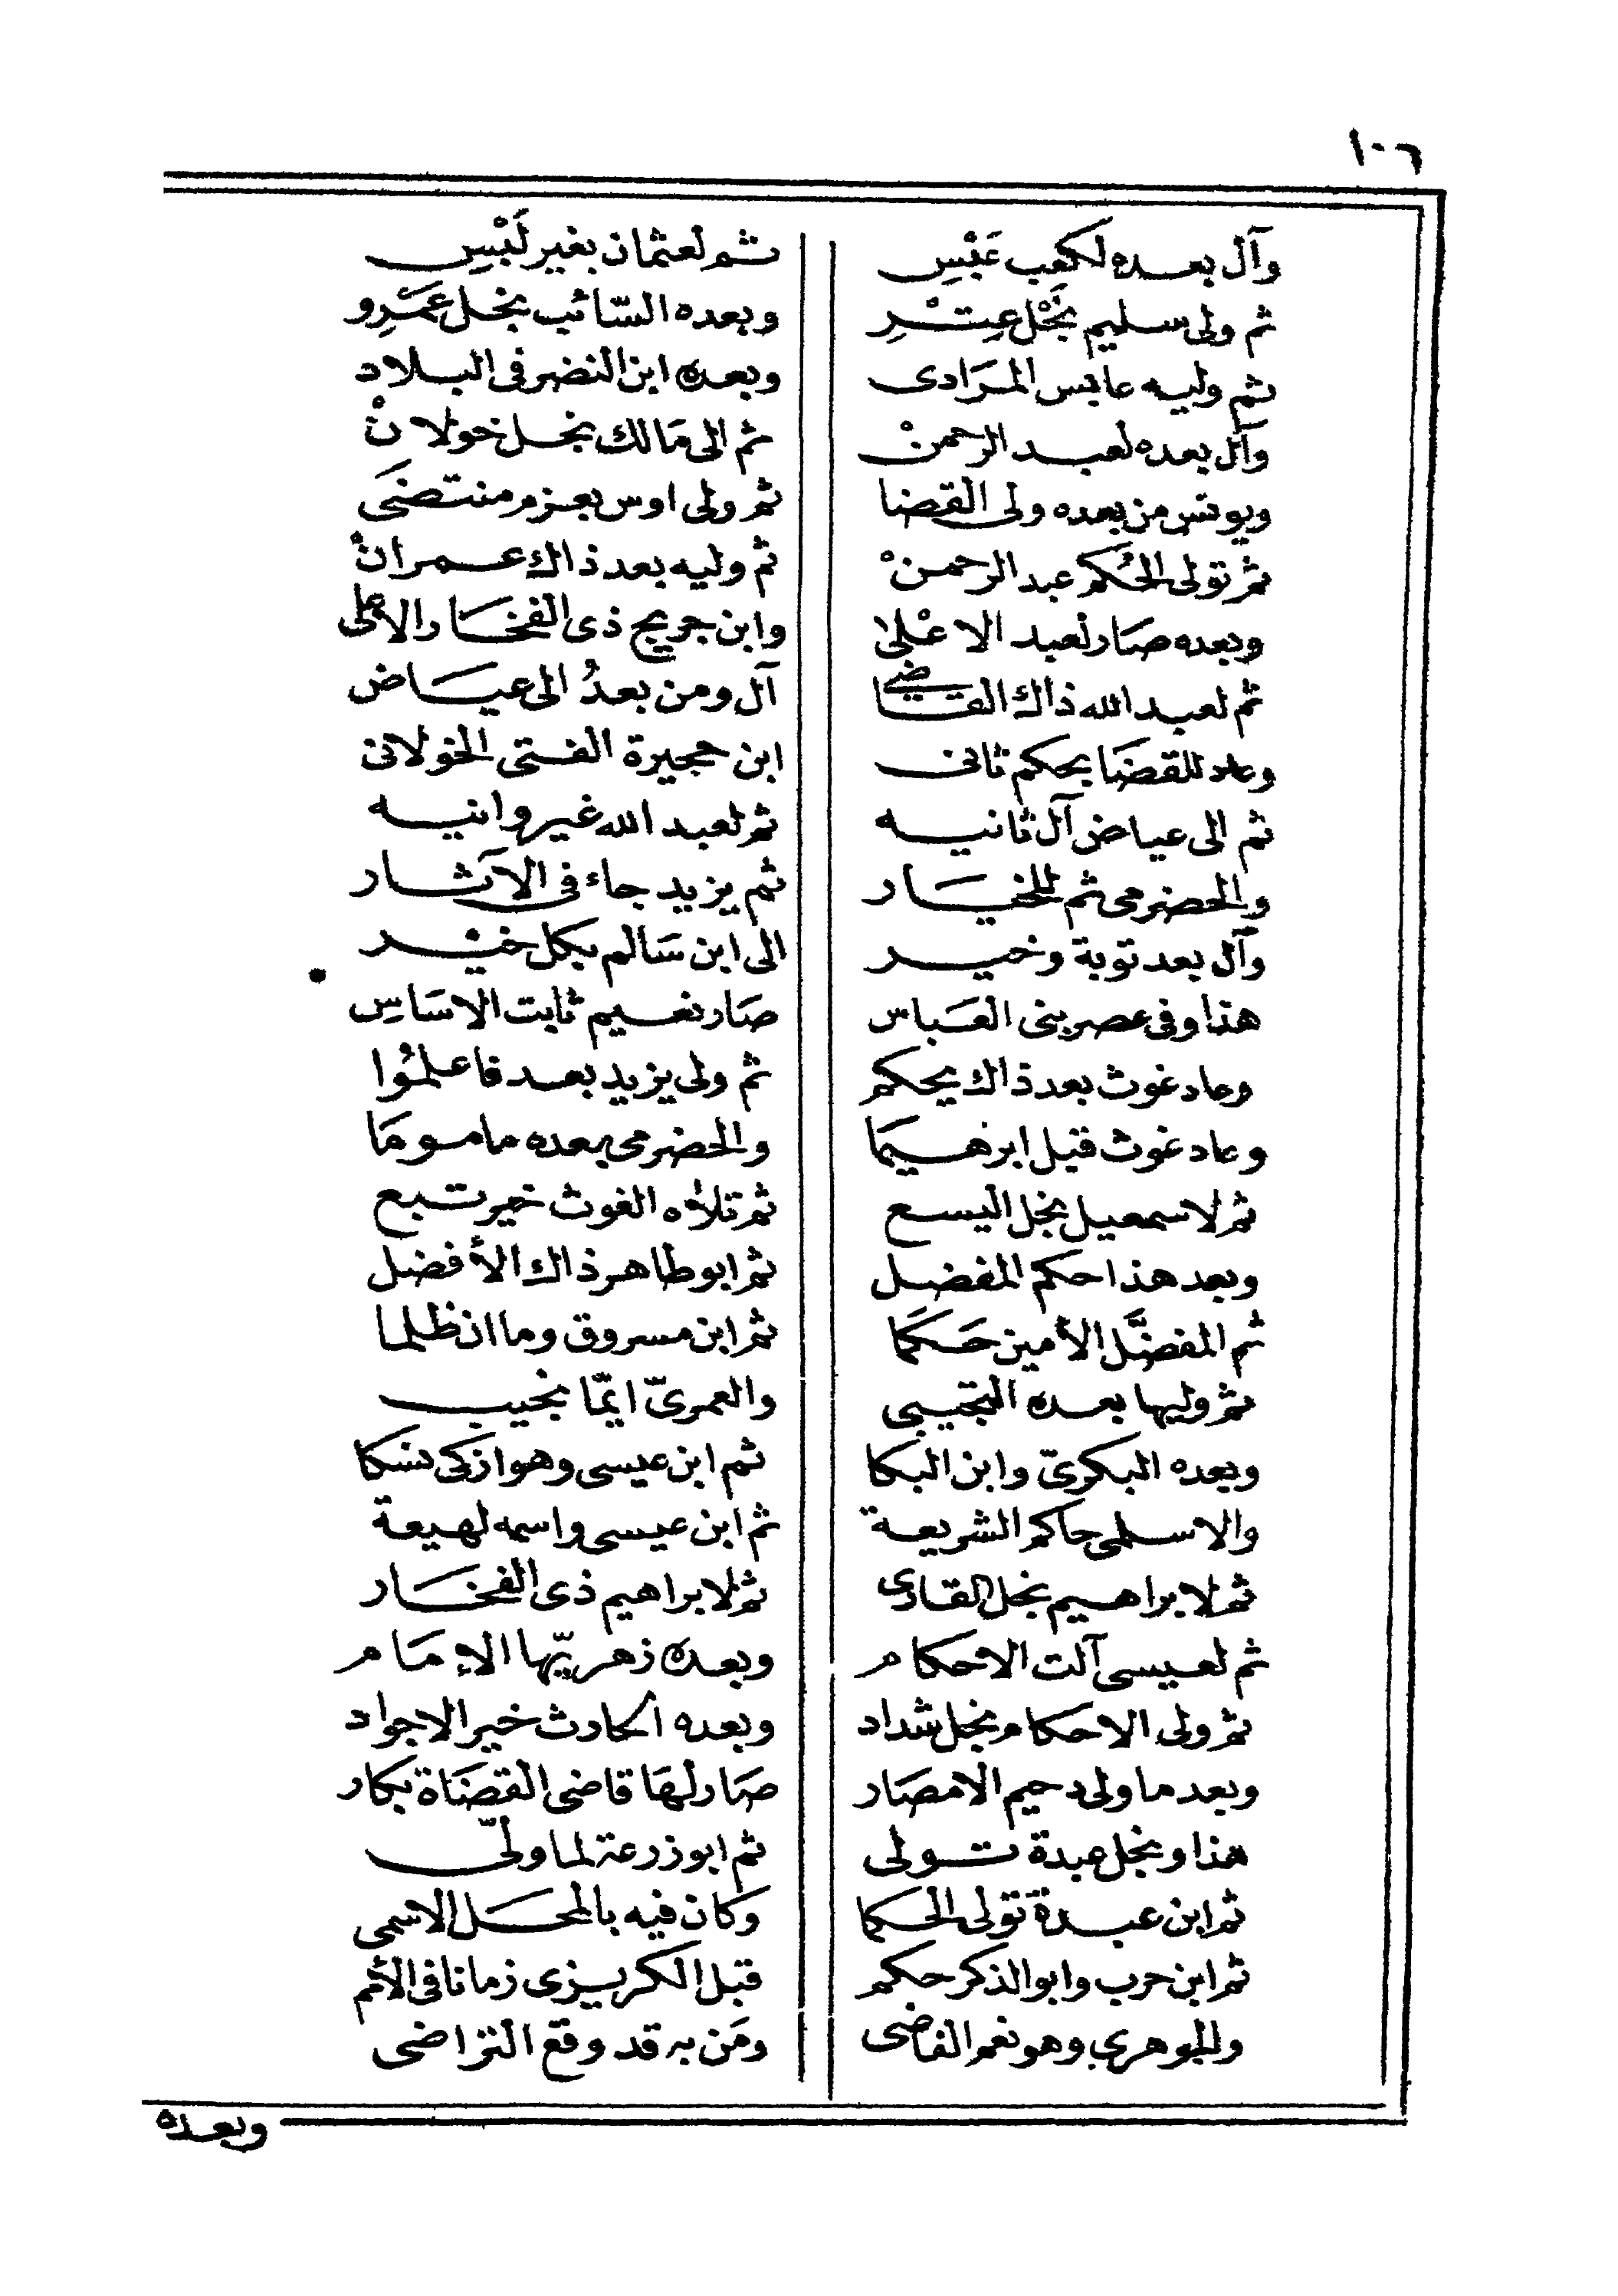 ١٠٦
وآل بعده لكعب عَبْسِ ثم لعثمان بغير لَبْسِ
ثم ولى سليم نَجْل عِتْرِ وبعده السّائب نجل عَمْرِو
ثم وليه عابس المرَادى وبعده ابن النضر فى البلاد
وآل بعده لعبد الرحمنْ ثم الى مَالك نجل خولانْ
ويونس من بعده ولى القضا ثم ولى اوس بعزم منتضَى
ثم تولى الحُكم عبد الرحمنْ ثم وليه بعد ذاك عمرانْ
وبعده صَار لعبد الاعْلىٰ وابن جريج ذى الفخَار الاعلى
ثم لعبد الله ذاك القاضى آل ومن بعدُ الى عيَاض
وعاد للقضَا بحكم ثانى ابن حجيرة الفتى الخولانى
ثم الى عياض آل ثانيه ثم لعبد الله غير وانيه
والحضرمى ثم للخيَار ثم يزيد جاء فى الآثار
وآل بعد توبة وخير الى ابن سَالم بكل خير
هذا وفى عصر بنى العبَاس صَار نعيم ثابت الاسَاسِ
وعاد غوث بعد ذاك يحكم ثم ولى يزيد بعد فاعلمُوا
وعاد غوث قبل ابرهيمَا والحضرمى بعده مامومَا
ثم لاسمعيل نجل اليسع ثم تلاه الغوث خير تبع
وبعد هذا حكم المفضل ثم ابو طاهر ذاك الأفضل
ثم المفضَّل الأمين حَكَما ثم ابن مسروق وما ان ظلما
ثم وليها بعده التجيبى والعمرىّ ايّما نجيب
وبعده البكرىّ وابن البكا ثم ابن عيسى وهو ازكى نسكا
والاسلمى حاكم الشريعة ثم ابن عيسى واسمه لهيعة
ثم لابراهيم نجل القارى ثم لابراهيم ذى الفخَار
ثم لعيسى آلت الاحكام وبعده زهريّها الإمَام
ثم ولى الاحكام نجل شداد وبعده الحارث خير الاجواد
وبعد ما ولى دحيم الامصَار صَار لهَا قاضى القضَاة بكار
هذا ونجل عبدة تولى ثم ابو زرعة لما ولّى
ثم ابن عبدة تولى الحكما وكان فيه بالمحل الاسمى
ثم ابن حرب وابو الذكر حكم قبل الكريزى زمانا فى الأمم
وللجوهرى وهو نعم القاضى ومَن به قد وقع التراضى
وبعده